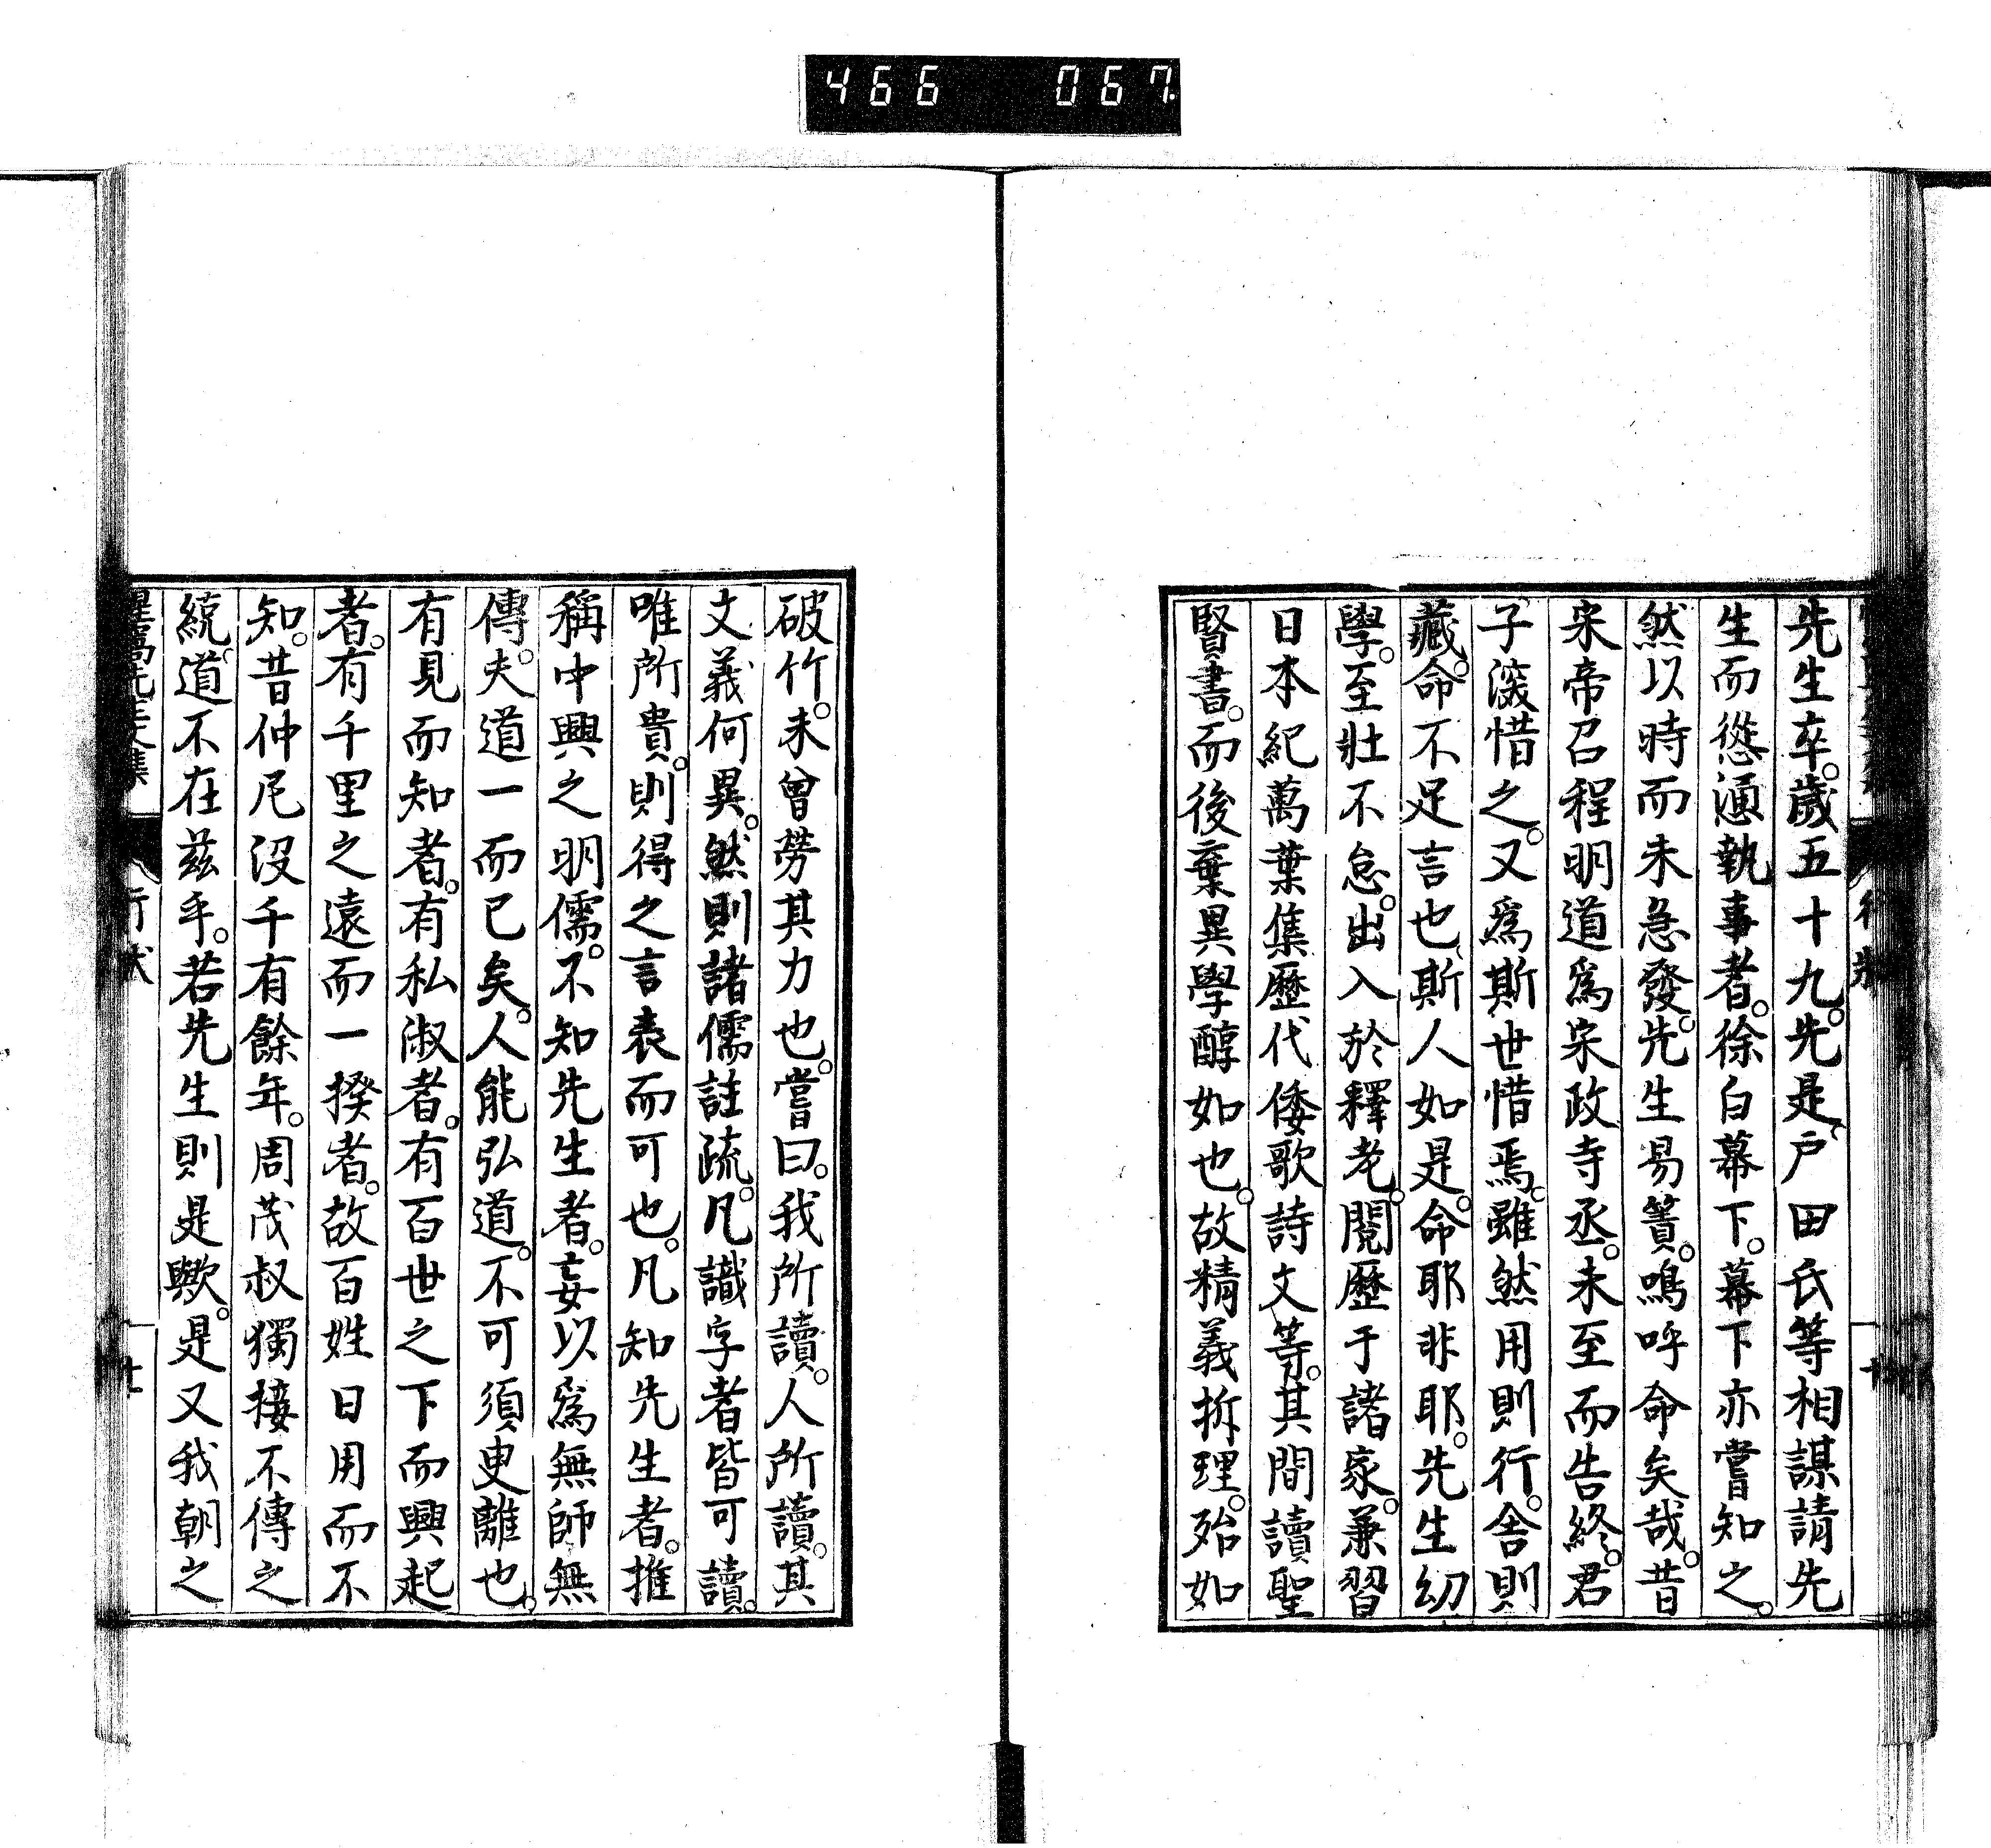 466 067
先生卒。歳五十九。先是、戸田氏等相謀請先
生而慫慂執事者。徐白幕下。幕下亦嘗知之。
然以時而未急發。先生易簀。鳴呼命矣哉。昔
宋帝召程明道爲宋政寺丞。未至而告終。君
子深惜之。又爲斯世惜焉。雖然用則行。舍則
藏。命不足言也、斯人如是。命耶非耶。先生幼
學。至壯不怠。出入於釋老。閲歷于諸家。兼習
日本紀萬葉集歷代倭歌詩文等。其間讀聖
賢書。而後棄異學醇如也。故精義拆理。殆如
破竹。未曾勞其力也。嘗曰。我所讀。人所讀。其
文義何異。然則諸儒註疏。凡識字者皆可讀。
唯所貴。則得之言表而可也。凡知先生者。推
稱中興之明儒。不知先生者。妄以爲無師無
傳。夫道一而已矣。人能弘道。不可須臾離也。
有見而知者。有私淑者。有百世之下而興起
者。有千里之遠而一揆者。故百姓日用而不
知。昔仲尼沒千有餘年。周茂叔獨接不傳之
統。道不在茲乎。若先生則是歟。是又我朝之
行狀